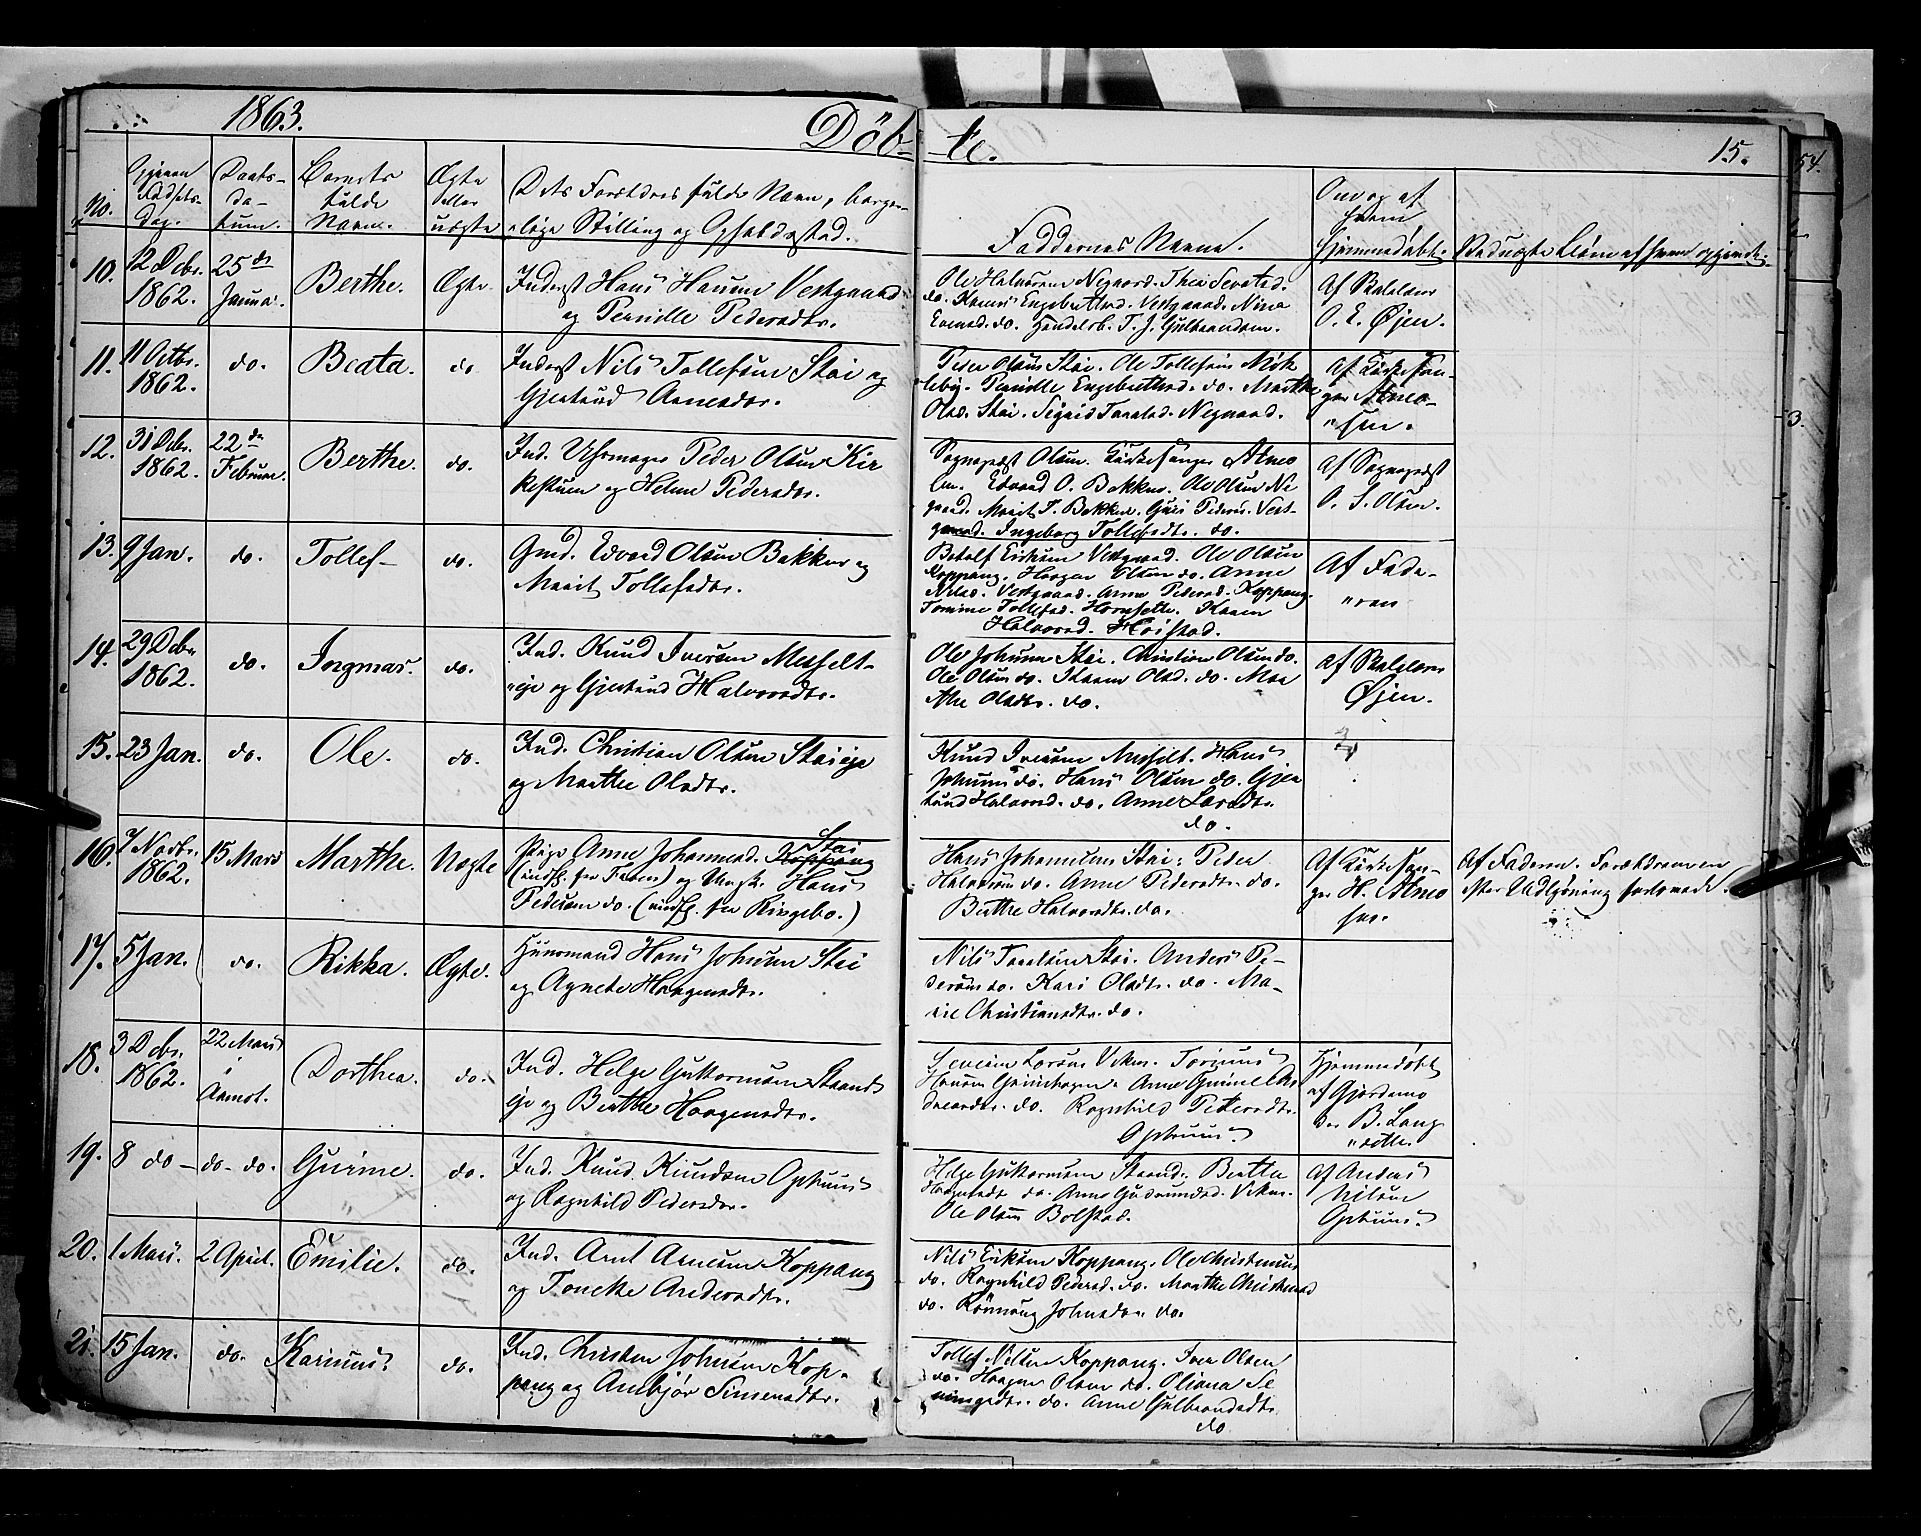 1863.
Döb-
te.
15.
54.
No.
Barnets
fulde
Navn.
Ægte
eller
uægte
Dets Forældres fulde Navn, borger-
-lige Stilling og Opholdssted.
Faddernes Navne.
Om og af
hvem
hjemmedøbt.
10.
12 Debr.
1862.
25de
Januar.
Berthe.
Ægte.
Inderst Hans Hansen Vestgaard
og Pernille Pedersdtr.
Ole Halvorsen Negaard. Thea Sevatsd.
do. Karen Engebretsd. Vestgaard. Nina
Evensd. do. Handelsb. T. J. Gulbrandsen.
Af Skolelærer
O. E. Øjen.
11.
11 Octbr.
1862.
do.
Beata.
do
Inderst Nils Tollefsen Stai og
Gjertrud Arnesdtr.
Peder Olsen Stai. Ole Tollefsen Møk
leby. Pernille Engebretsd. do. Marthe
Olsd. Stai. Sigrid Tarald. Negaard.
Af Kirkesan-
ger Atmo-
"sen.
12.
31 Debr.
1862.
22de
Februar.
Berthe.
do.
Ind. Uhrmager Peder Olsen Kir
kestuen og Helene Pedersdtr.
Sognepræst Olsen. Kirkesanger Atmo
sen. Edvard O. Bakken. Ole Olsen Ne
gaard. Marit T. Bakken. Guri Peders. Vest-
gaard. Ingeborg Tollefsdtr. do.
Af Sognepræst
O. S. Olsen.
13.
9 Jan.
do.
Tollef-
do.
Gmd. Edvard Olsen Bakken og
Marit Tollefsdtr.
Botolf Eriksen Vestgaard. Ole Olsen
Koppang. Haagen Olsen do. Anne
Nilsd. Vestgaard. Anne Pedersd. Koppang.
Tomine Tollefsd. Hornsette. Karen
Halvorsd. Høistad.
Af Fade-
"ren
14.
29 Debr
1862.
do.
Ingmar.
do.
Ind. Knud Iversen Messelt-
"eje og Gjertrud Halvorsdtr.
Ole Johnsen Stai. Christian Olsen do.
Ole Olsen do. Karen Olsd. do. Mar
the Olsdtr. do.
Af Skolelærer
Øjen.
15.
23 Jan.
do.
Ole.
do.
Ind. Christian Olsen Staieje
og Marthe Olsdtr.
Knud Iversen Messelt. Hans
Johnsen do. Hans Olsen do. Gjer
trud Halvorsd. do. Anne Larsdtr.
do.
16.
7 Novbr.
1862.
15 Mars
Marthe.
Uægte
Stai
Pige Anne Johannesd. Koppang
(indfl. fra Faaberg) og Ungk. Hans
Pedersen do. (indfl. fra Ringebo.)
Hans Johannesen Stai. Peder
Halvorsen do. Anne Pedersdtr. do.
Berthe Halvorsdtr. do.
Af Kirkesan-
ger H. Atmo
sen.
Af Faderen. Forældrene ere
efter Udlysning forlovede.
17.
5 Jan.
do.
Rikka.
Ægte.
Huusmand Hans Johnsen Stai
og Agnete Haagensdtr.
Nils Taraldsen Stai. Anders Pe-
dersen do. Kari Olsdtr. do. Ma-
rie Christiansdtr. do.
18.
3 Debr.
1862.
22 Mars
i
Aamot.
Dorthea.
do.
Ind. Helge Guttormsen Strand
eje og Berthe Haagensdtr.
Severin Larsen Viken. Torjuus
Hansen Grindhagen. Anne Gunnel An
dreasdtr. do. Ragnhild Pedersdtr.
Ophuus.
Hjemmedøbt
af Gjordemo
der B. Lang
"sette.
19.
8 do-
do- do.
Gurine.
do.
Ind. Knud Knudsen Ophuus
og Ragnhild Pedersdtr.
Helge Guttormsen Strand. Berthe
Haagensdtr. do. Anne Gudmundsd. Viken.
Ole Olsen Bolstad.
Af Anders
Nilsen
Ophuus.
20.
1 Mars.
2 April.
Emilie.
do.
Ind. Arnt Arnesen Koppang
og Tonethe Andersdtr.
Nils Eriksen Koppang. Ole Christensen
do. Ragnhild Pedersd. do. Marthe Christensd
do. Rønnaug Johnsdtr. do.
21.
15 Jan.
do.
Karinus.
do.
Ind. Christen Johnsen Kop-
pang og Anbjør Simensdtr.
Tollef Nilsen Koppang. Iver Olsen
do. Haagen Olsen do. Oliana Se
mingsdtr. do. Anne Gulbrandsdtr.
do